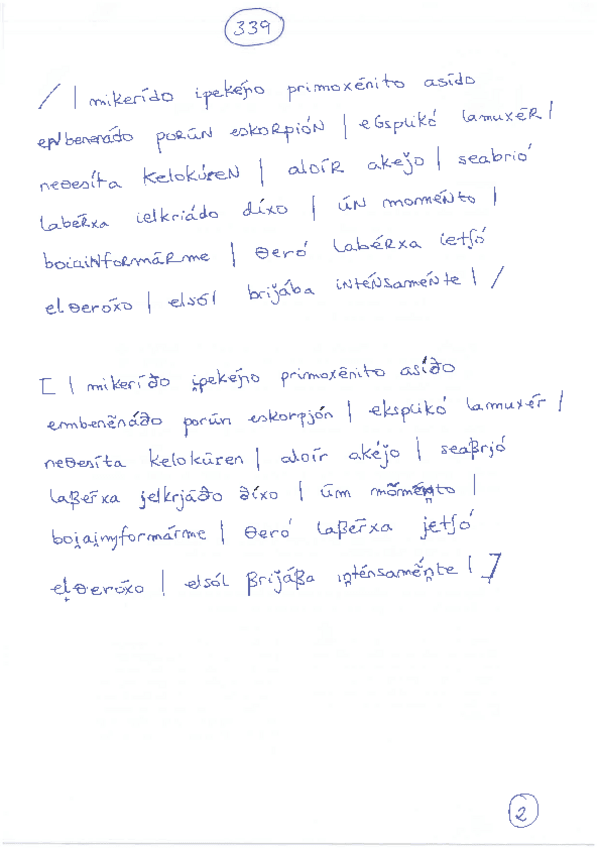 339
/ | mikerído ipekéɲo primoxénito asído
eNbenenádo porúN eskoRpióN | eGsplikó lamuxéR |
neθesíta kelokúReN | aloíR akéǰo | seabrió
labéRxa ielkriádo díxo | úN moméNto |
boiaiNfoRmáRme | θeró labéRxa ietʃó
elθeróxo | elsól briǰába iNténsaméNte | /
[ | mikeríðo i̯pekéɲo primoxénito asíðo
embenẽnáðo porún eskorpjón | eksplikó lamuxér |
neθesíta kelokúren | aloír akéǰo | seaβrjó
laβérxa jelkrjáðo díxo | úm mõmén̪to |
boi̯ai̯ɱformárme | θeró laβérxa jetʃó
el̪θeróxo | elsól βriǰáβa in̪ténsamén̪te | ]
2